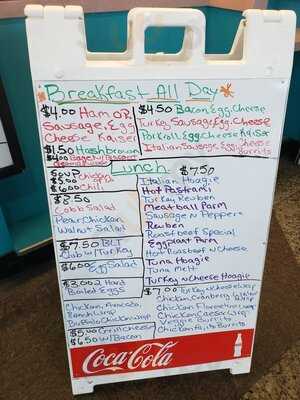 Breakfast All Day
$4.00 Ham or
Sausage, Egg
Cheese Kaiser
$1.50 Hashbrown
$4.00 Bagel w/
$4.50 Bacon, Egg, Cheese
Turkey Sausage, Egg, Cheese
Pork roll, Egg, Cheese Kaiser
Italian Sausage, Egg, Cheese
Burrito
Lunch
Soup
$6.00 Chili
$8.50
Cobb Salad
Pear Chicken
Walnut Salad
$7.50 BLT
Club w/ Turkey
$6.00 Egg Salad
$3.00 2 Hard
Boiled Eggs
Chicken, Avocado,
Ranch Wrap
Buffalo Chicken Wrap
$5.00 Grill Cheese
$6.50 w/ Bacon
$7.50
Italian Hoagie
Hot Pastrami
Turkey Reuben
Meatball Parm
Sausage N Peppers
Reuben
Roast Beef Special
Eggplant Parm
Hot Roast Beef N Cheese
Tuna Hoagie
Tuna Melt
Turkey N Cheese Hoagie
Turkey N Cheese Wrap
Chicken Cranberry Wrap
Chicken Florentine Wrap
Chicken Caesar Wrap
Veggie Burrito
Chicken Fajita Burrito
Coca-Cola